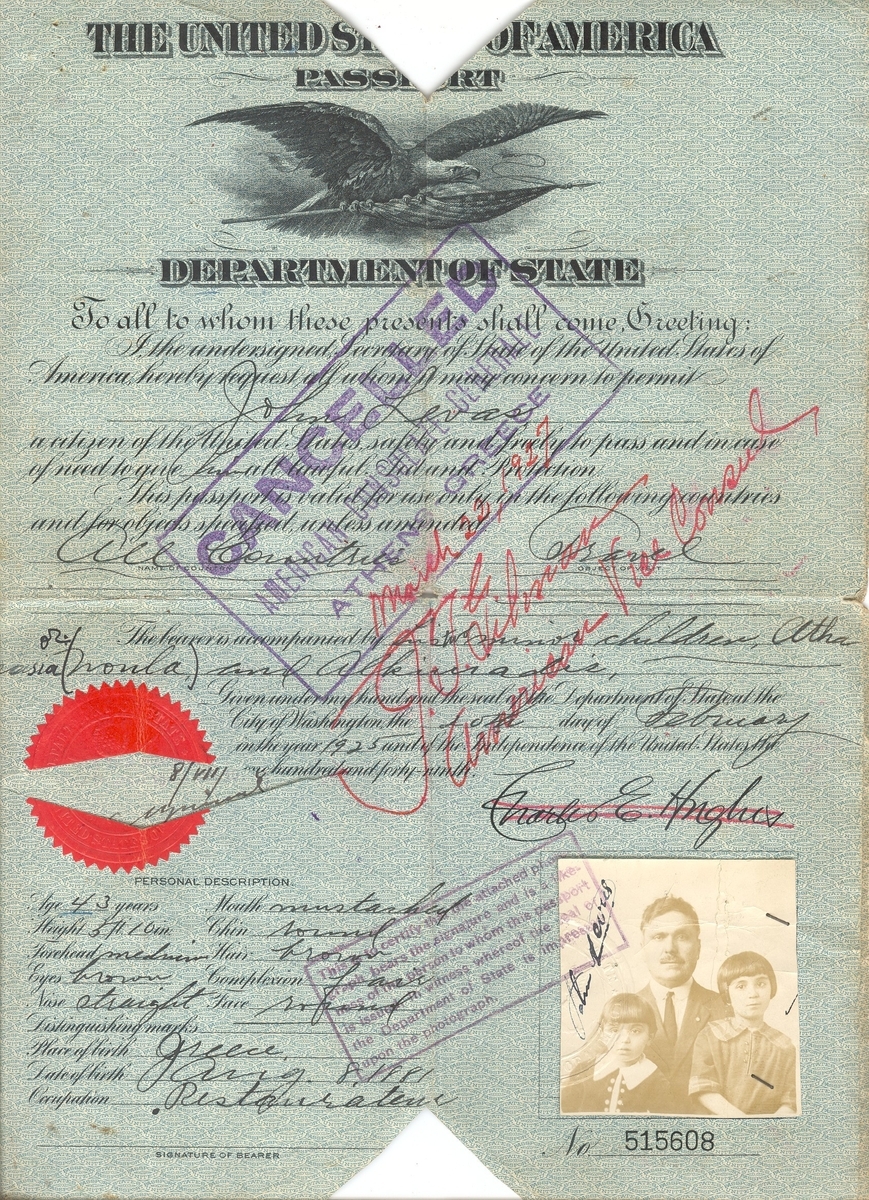 THE UNITED ST OF AMERICA
PASSPORT
DEPARTMENT OF STATE
To all to whom these presents shall come, Greeting:
I the undersigned, Secretary of State of the United States of
America, hereby request all whom it may concern to permit
John Levas
a citizen of the United States, safely and freely to pass and in case
of need to give him all lawful Aid and Protection.
This passport is valid for use only in the following countries
and for objects specified, unless amended
All Countries Travel
NAME OF COUNTRY OBJECT OF VISIT
The bearer is accompanied by his minor children, Atha
or
nasia (noula) and
Given under my hand and the seal of the Department of State at the
City of Washington, the 10th day of February
in the year 1925 and of the Independence of the United States the
one hundred and forty-ninth.
8/VIII
Charles E. Hughes
CANCELLED
AMERICAN CONSULATE GENERAL
ATHENS GREECE
March 22, 1927
American Vice Consul
PERSONAL DESCRIPTION.
Age 43 years Mouth mustached
Height 5 ft 10 in. Chin round
Forehead medium Hair brown
Eyes brown Complexion fair
Nose straight Face round
Distinguishing marks
Place of birth Greece,
Date of birth Aug. 8, 1881
Occupation Restaurateur
SIGNATURE OF BEARER
This is to certify that the attached photo-
graph bears the signature and is a like-
ness of the person to whom this passport
is issued. In witness whereof the seal of
the Department of State is impressed
upon the photograph.
John Levas
No 515608